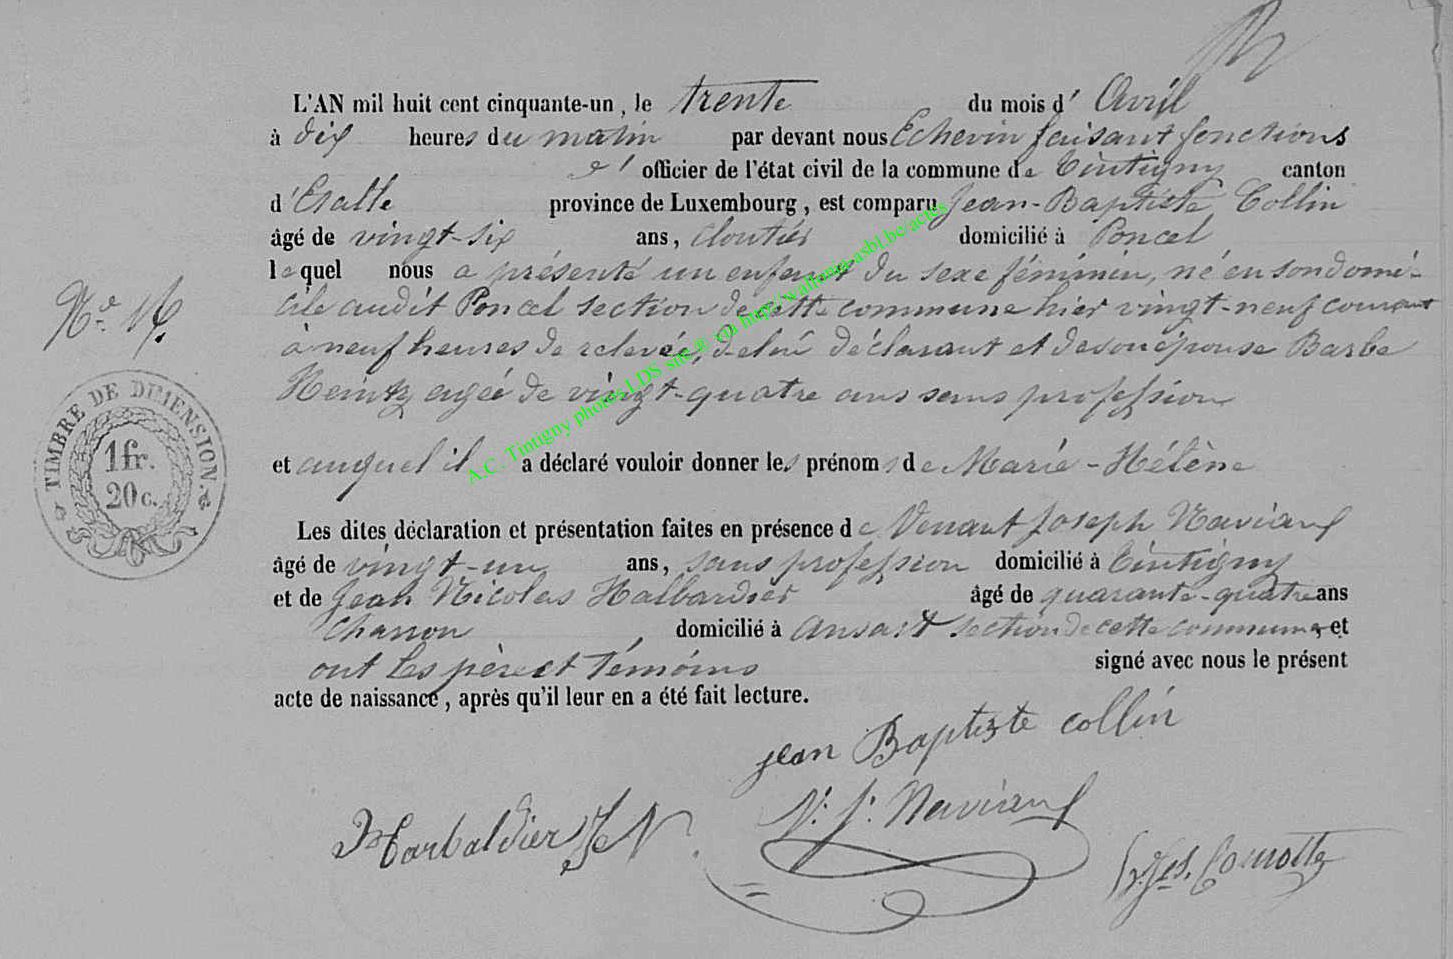 L'AN mil huit cent cinquante-un, le trente du mois d' Avril
à dix heures du matin par devant nous Echevin faisant fonctions
d' officier de l'état civil de la commune de Tintigny canton
d' Etalle province de Luxembourg, est comparu Jean-Baptiste Collin
âgé de vingt-six ans, cloutier domicilié à Poncel
lequel nous a présenté un enfant du sexe féminin, né en son domi-
cile audit Poncel section de cette commune hier vingt-neuf courant
N°
à neuf heures de relevée, de lui déclarant et de son épouse Barbe
Heintz agée de vingt-quatre ans sans profession
TIMBRE DE DIMENSION.
1fr.
20 c.
et auquel il a déclaré vouloir donner les prénoms de Marie-Hélène
Les dites déclaration et présentation faites en présence de Venant Joseph Naviaux
âgé de vingt-un ans, sans profession domicilié à Tintigny
et de Jean Nicolas Halbardier âgé de quarante-quatre ans
Charron domicilié à Ansart section de cette commune et
ont les père et témoins signé avec nous le présent
acte de naissance, après qu'il leur en a été fait lecture.
jean Baptiste collin
V. J. Naviaux
Harbaldier J N
A.C. Tintigny photos LDS site ® via http//wallonia-asbl.be/actes